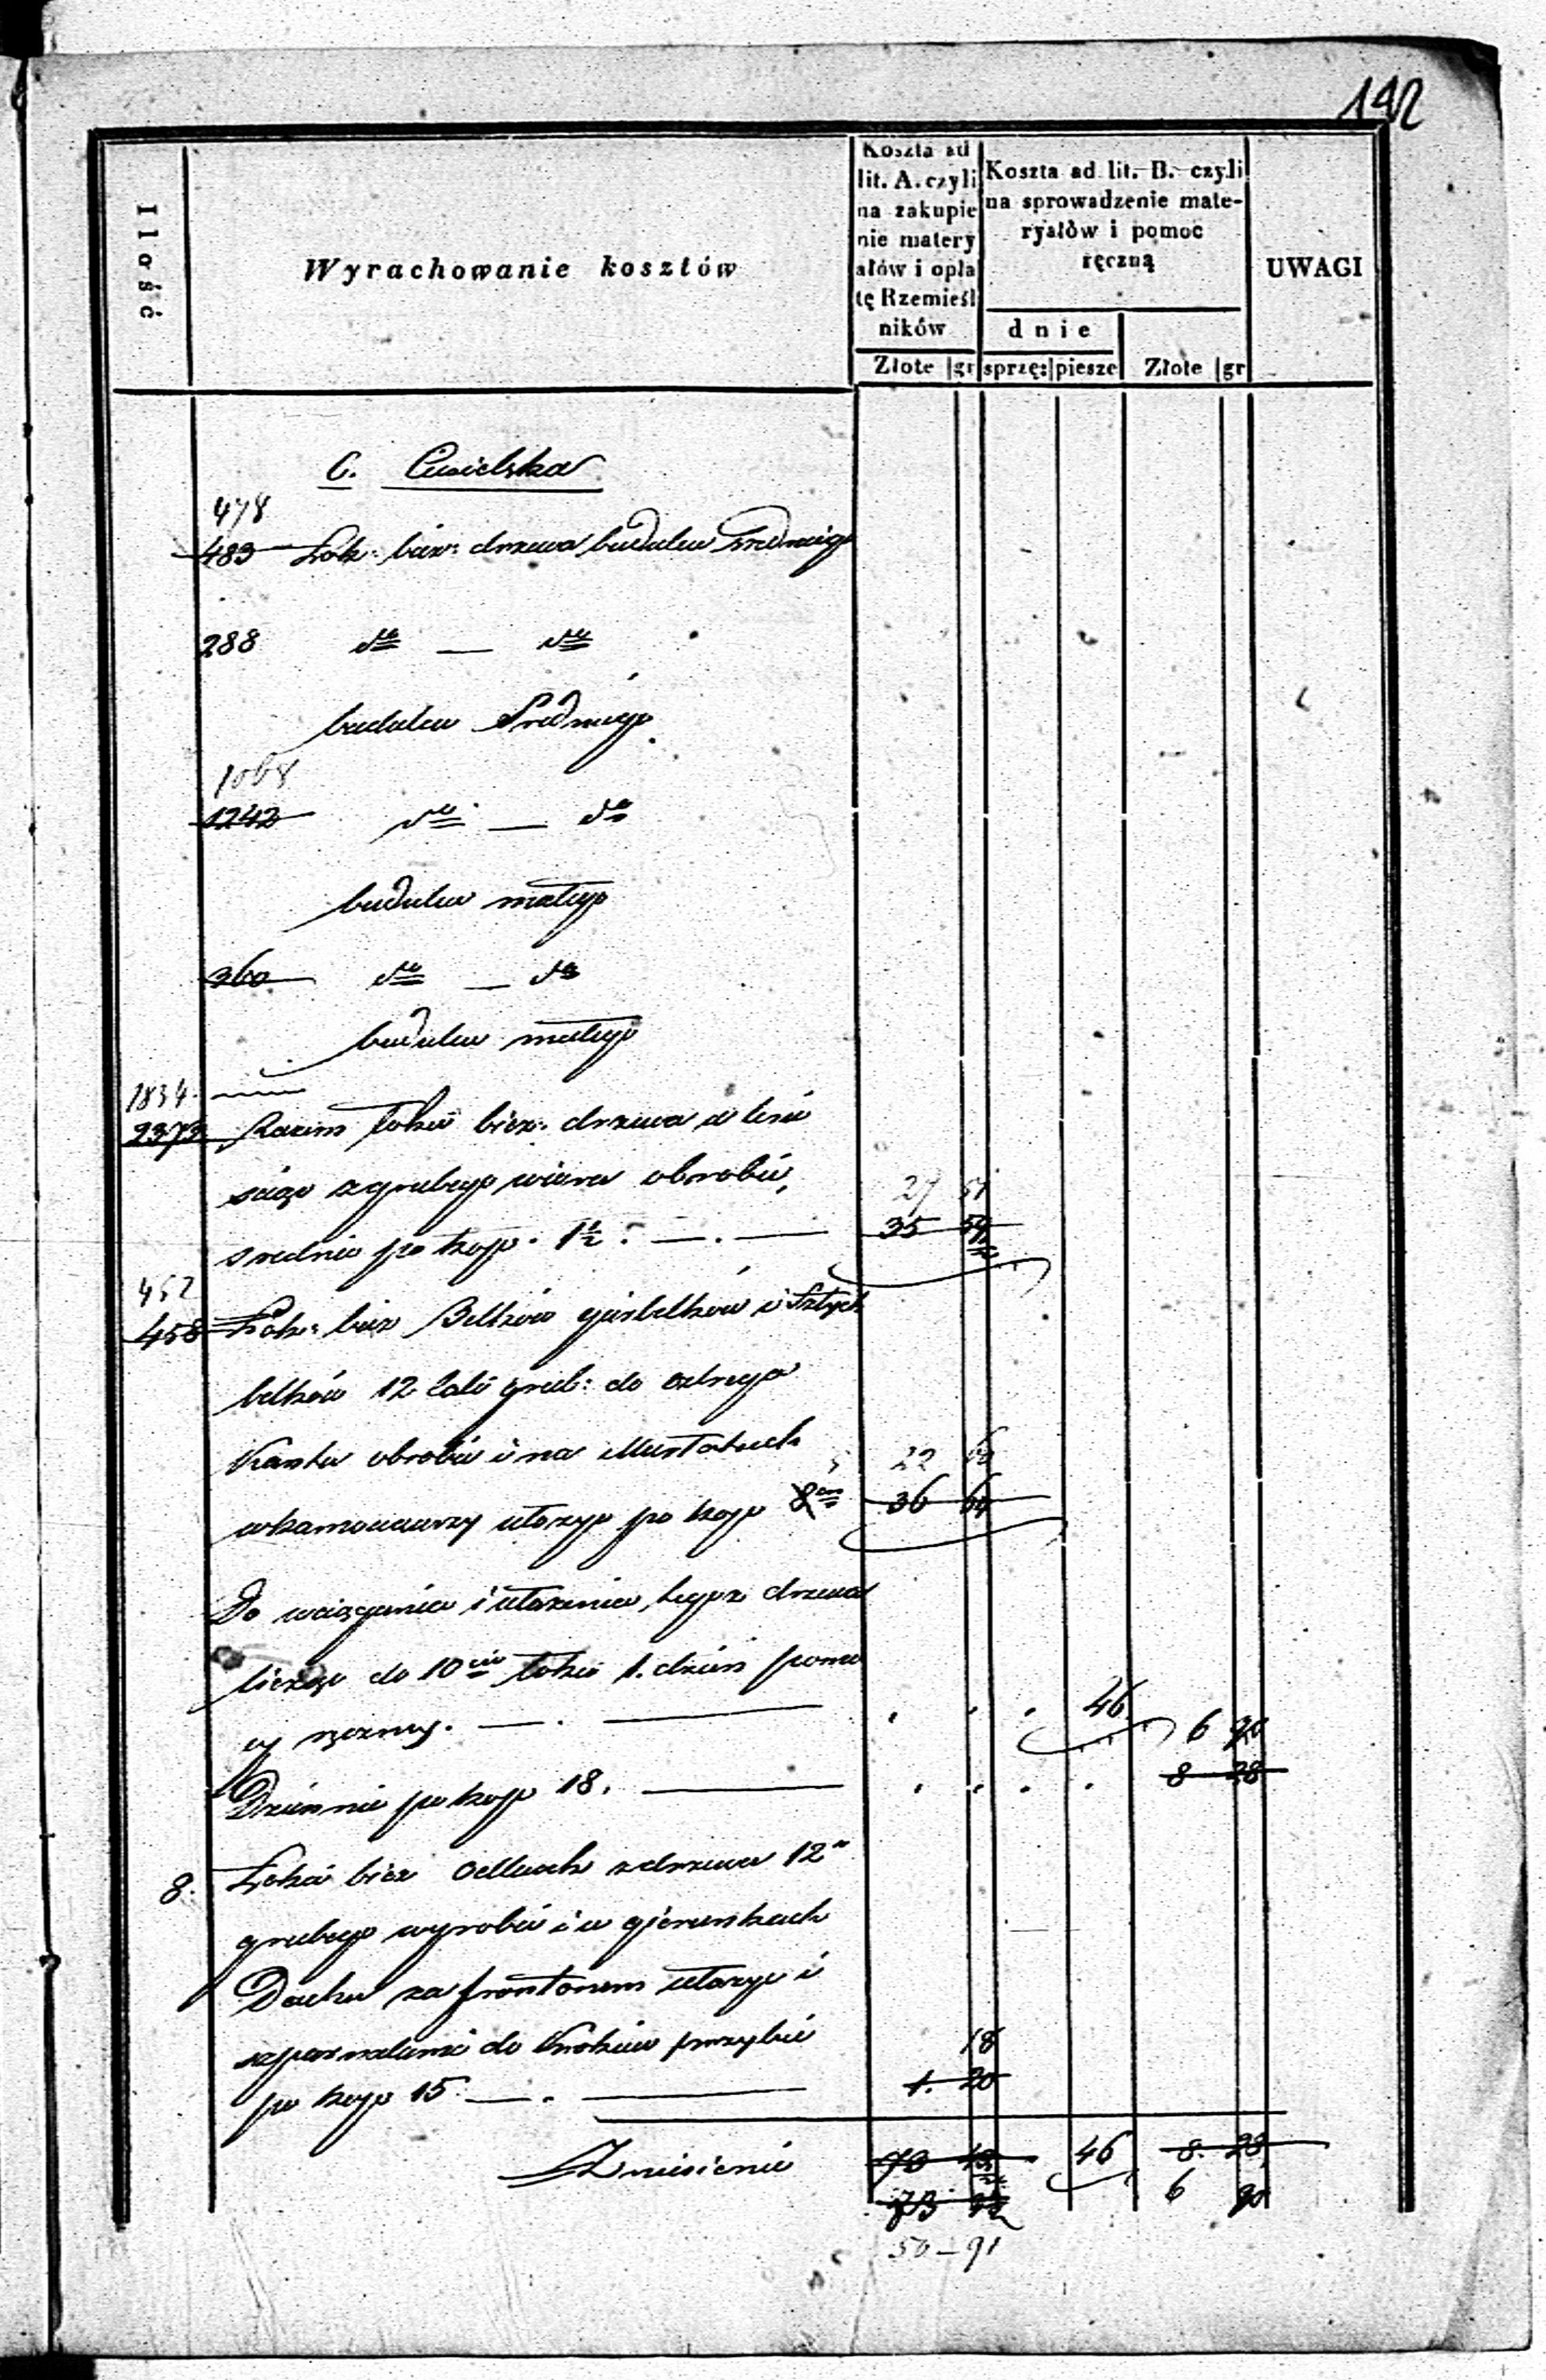 142
Ilość
Wyrachowanie kosztów
Koszta ad
lit. A. czyli
na zakupie
nie matery
ałów i opła
tę Rzemieśl
ników
Koszta ad lit. B. czyli
na sprowadzenie mate-
ryałów i pomoc
ręczną
dnie
UWAGI
Złote gr sprzę: piesze Złote gr
C. Ciesielska
478
483 Łok: bież: drzewa budulcu średniego
288 do — do
budulcu średniego
1068
1242 do — do
budulcu małego
360 do — do
budulcu małego
1834
2373 Razem łokci bież: drzewa w lesie
ściąć z grubego wióra obrobić,
średnio po kop. 1½ : — . —
27 51
35 59
452
458 Łok: bież Belków i sztych
belków 12 cali grub: do ostrego
kantu obrobić i na Murłatach
ułożyć po kop 8
22 60
36 64
Do wciągania i ułożenia tegoż drzewa
licząc do 10ciu łokci 1. dzień pomo
cy ręcznej. — . — 46
6 90
Dziennie po kop 18. — 8 28
8. Łokci bież z drzewa 12"
grubego wyrobić i w
Dachu za frontonem ułożyć i
do krokiew przybić
po kop 15. — . —
18
1. 20
Zniesienie
73 46 8. 28
73 6 90
50 – 91